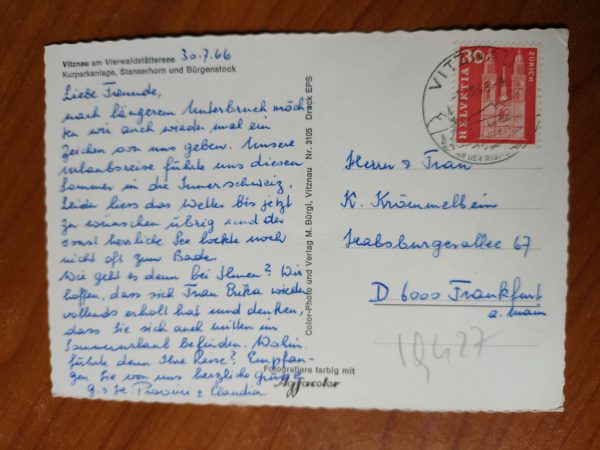 Vitznau am Vierwaldstättersee
Kurparkanlage, Stanserhorn und Bürgenstock
30.7.66
Liebe Freunde,
nach längerem Unterbruch möch
ten wir auch wieder mal ein
Zeichen von uns geben. Unsere
Urlaubsreise führte uns diesen
Sommer in die Innerschweiz.
Leider liess das Wetter bis jetzt
zu wünschen übrig und der
sonst herrliche See lockte noch
nicht oft zum Bade.
Wie geht es denn bei Ihnen? Wir
hoffen, dass sich Frau wieder
vollends erholt hat und denken,
dass Sie sich auch mitten im
Sommerurlaub befinden. Wohin
führte denn Ihre Reise? Empfan-
gen Sie von uns herzliche Grüsse
& Claudia
Color-Photo und Verlag M. Bürgi, Vitznau Nr. 3105 Druck EPS
Fotografiere farbig mit
Agfacolor
30
HELVETIA
ZÜRICH
VITZ
AN DER RIGI
Herrn & Frau
K. Krömmelbein
Habsburgerallee 67
D 6000 Frankfurt
a. Main
19427